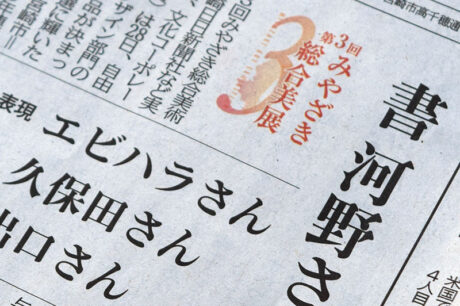 宮崎市高千穂通
書 河野さ
第3回
みやざき
総合美展
3回みやざき総合美術
崎日日新聞社など実
文化コーポレー
は28日、自由
ザイン部門の
品が決まっ
に輝いた
宮崎市=
表現 エビハラさん
久保田さん
出口さん
米国
4人目